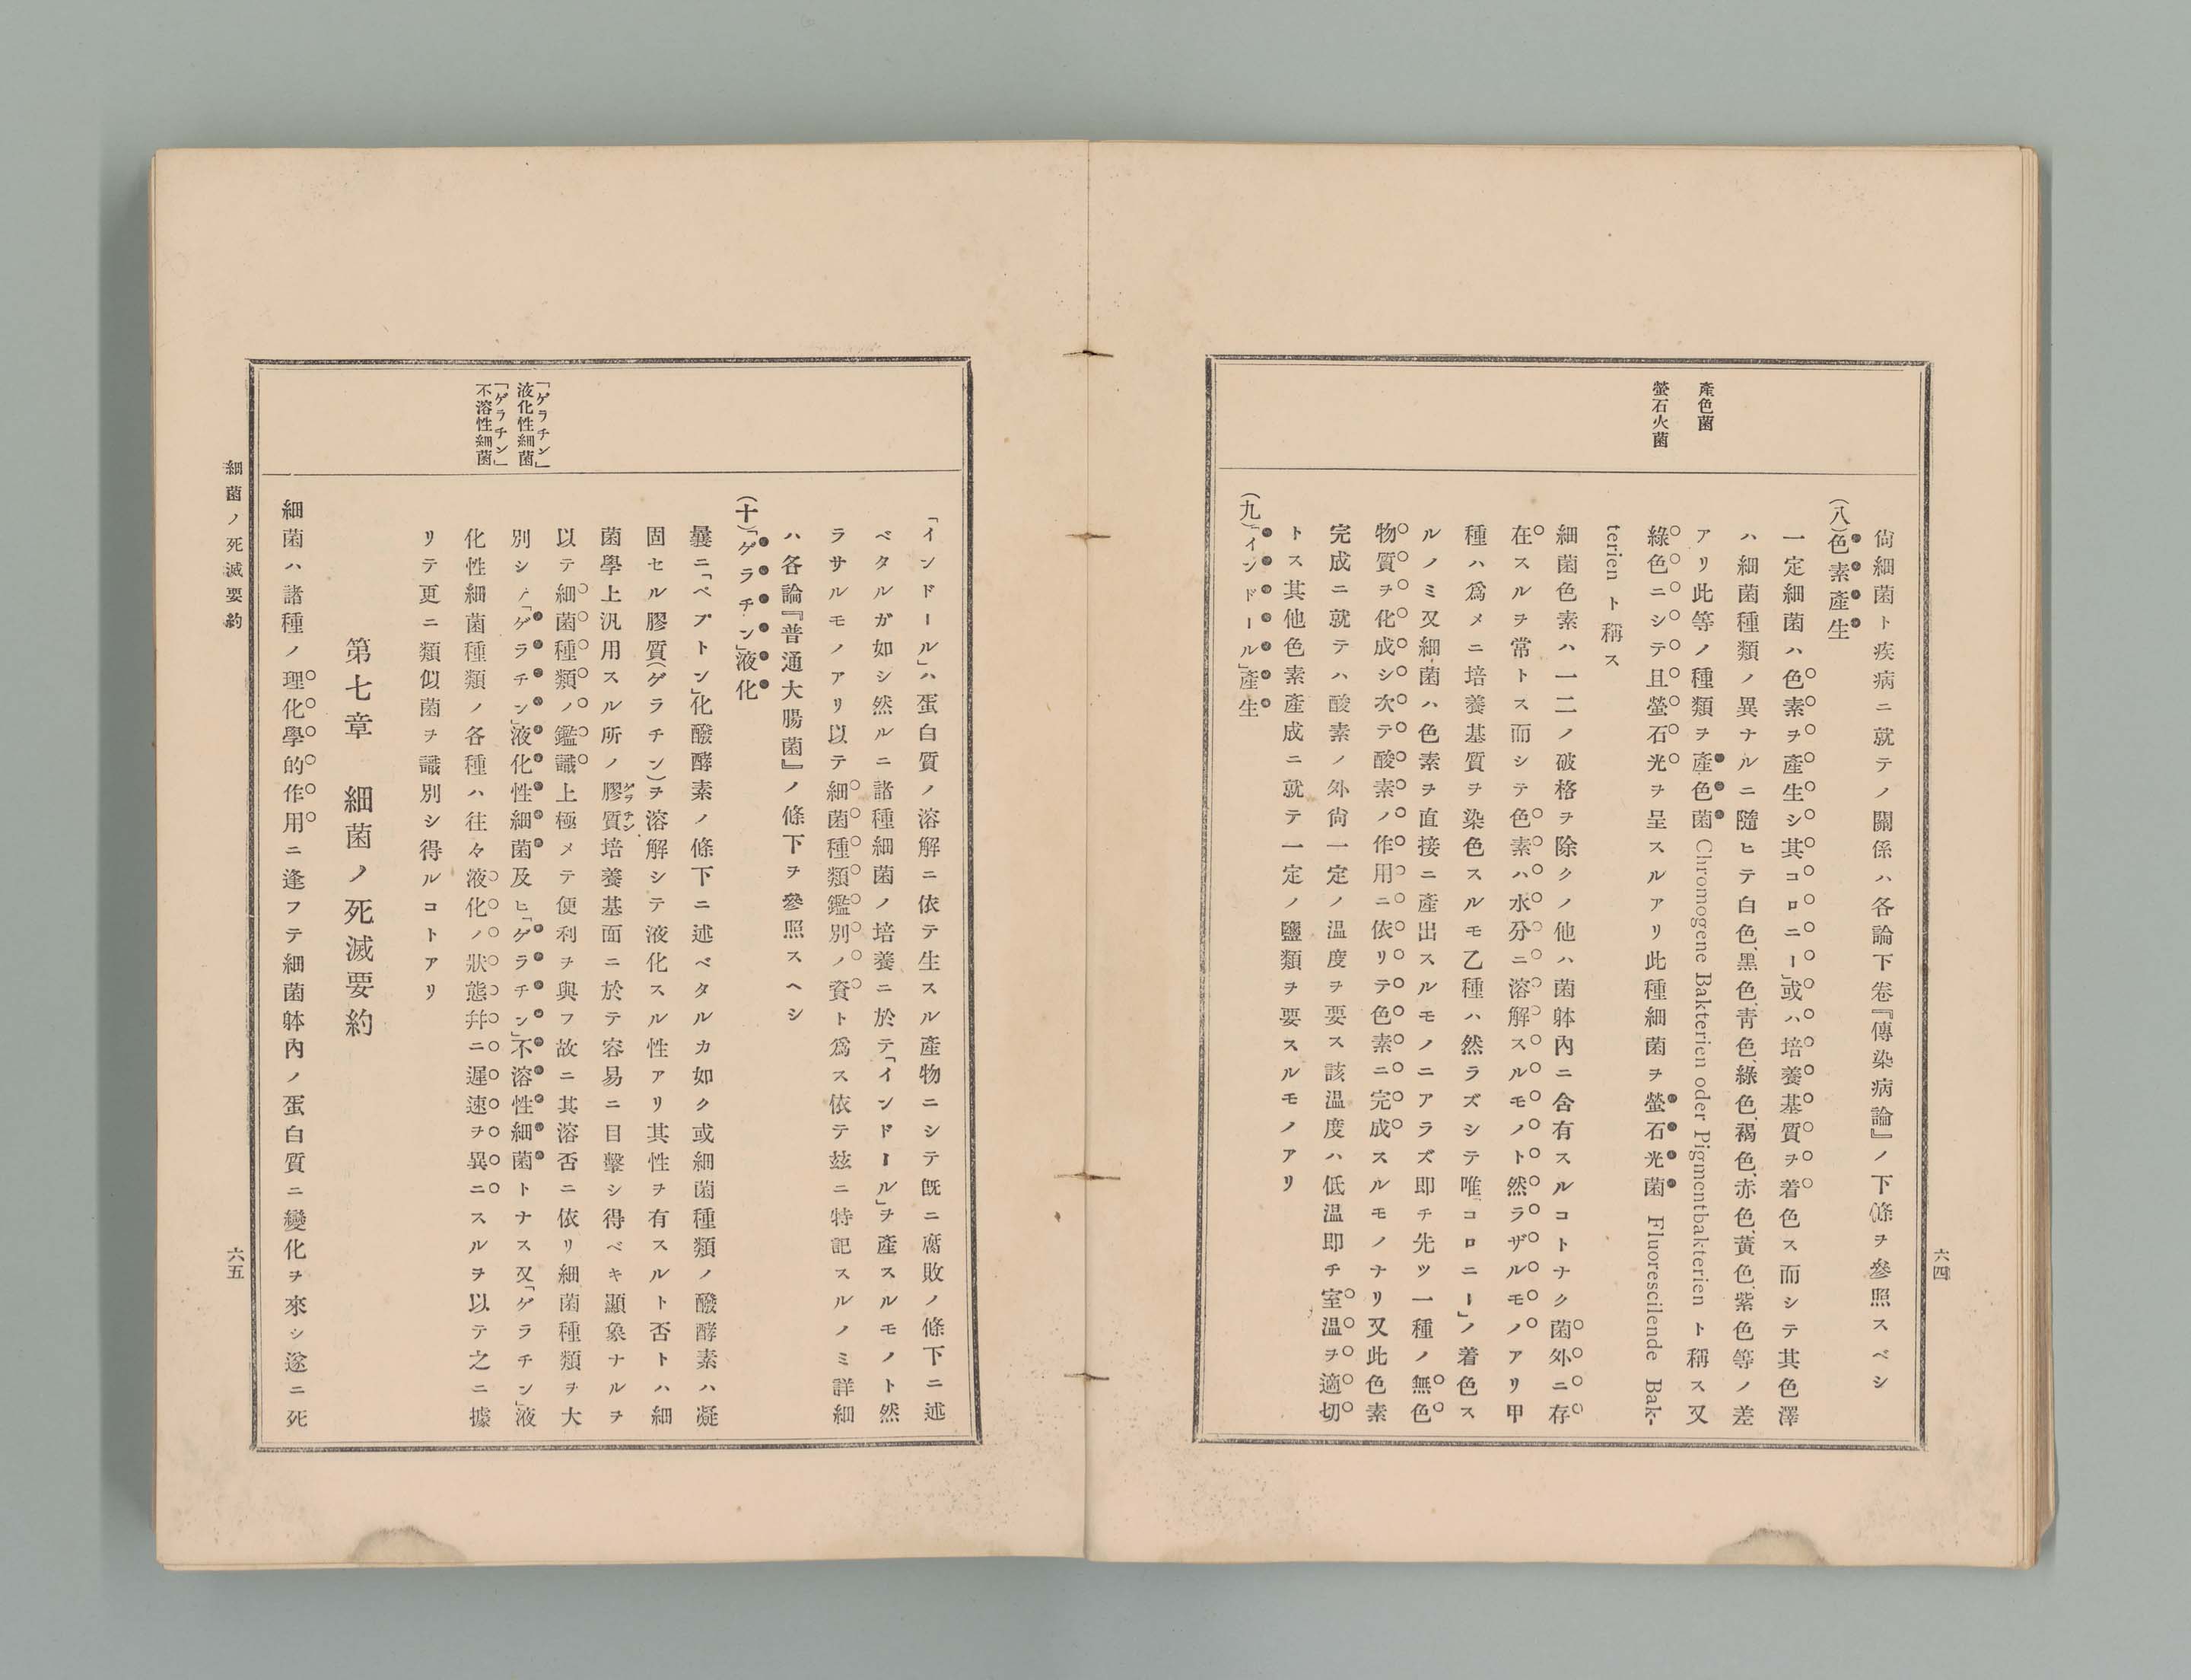 六四
產色菌
螢石火菌
尙細菌ト疾病ニ就テノ關係ハ各論下卷『傳染病論』ノ下條ヲ參照スベシ
(八)色素產生
一定細菌ハ色素ヲ產生シ其コロニー」或ハ培養基質ヲ着色ス而シテ其色澤
ハ細菌種類ノ異ナルニ隨ヒテ白色、黑色、靑色、綠色、褐色、赤色、黃色、紫色等ノ差
アリ此等ノ種類ヲ產色菌 Chromogene Bakterien oder Pigmentbakterien ト稱ス又
綠色ニシテ且螢石光ヲ呈スルアリ此種細菌ヲ螢石光菌 Fluorescilende Bak-
terien ト稱ス
細菌色素ハ一二ノ破格ヲ除クノ他ハ菌躰內ニ含有スルコトナク菌外ニ存
在スルヲ常トス而シテ色素ハ水分ニ溶解スルモノト然ラザルモノアリ甲
種ハ爲メニ培養基質ヲ染色スルモ乙種ハ然ラズシテ唯「コロニー」ノ着色ス
ルノミ又細菌ハ色素ヲ直接ニ產出スルモノニアラズ即チ先ツ一種ノ無色
物質ヲ化成シ次テ酸素ノ作用ニ依リテ色素ニ完成スルモノナリ又此色素
完成ニ就テハ酸素ノ外尙一定ノ温度ヲ要ス該温度ハ低温即チ室温ヲ適切
トス其他色素產成ニ就テ一定ノ鹽類ヲ要スルモノアリ
(九)「インドール」產生
「ゲラチン」
液化性細菌
「ゲラチン」
不溶性細菌
「インドール」ハ蛋白質ノ溶解ニ依テ生スル產物ニシテ既ニ腐敗ノ條下ニ述
ベタルガ如シ然ルニ諸種細菌ノ培養ニ於テ「インドール」ヲ產スルモノト然
ラサルモノアリ以テ細菌種類鑑別ノ資ト爲ス依テ玆ニ特記スルノミ詳細
ハ各論『普通大腸菌』ノ條下ヲ參照スヘシ
(十)「ゲラチン」液化
曩ニ「ペプトン」化醱酵素ノ條下ニ述ベタルカ如ク或細菌種類ノ醱酵素ハ凝
固セル膠質(ゲラチン)ヲ溶解シテ液化スル性アリ其性ヲ有スルト否トハ細
菌學上汎用スル所ノ膠質ゲラチン培養基面ニ於テ容易ニ目擊シ得ベキ顯象ナルヲ
以テ細菌種類ノ鑑識上極メテ便利ヲ與フ故ニ其溶否ニ依リ細菌種類ヲ大
別シテ「ゲラチン」液化性細菌及ヒ「ゲラチン」不溶性細菌トナス又「ゲラチン」液
化性細菌種類ノ各種ハ往々液化ノ狀態幷ニ遲速ヲ異ニスルヲ以テ之ニ據
リテ更ニ類似菌ヲ識別シ得ルコトアリ
第七章 細菌ノ死滅要約
細菌ハ諸種ノ理化學的作用ニ逢フテ細菌躰內ノ蛋白質ニ變化ヲ來シ遂ニ死
細菌ノ死滅要約
六五